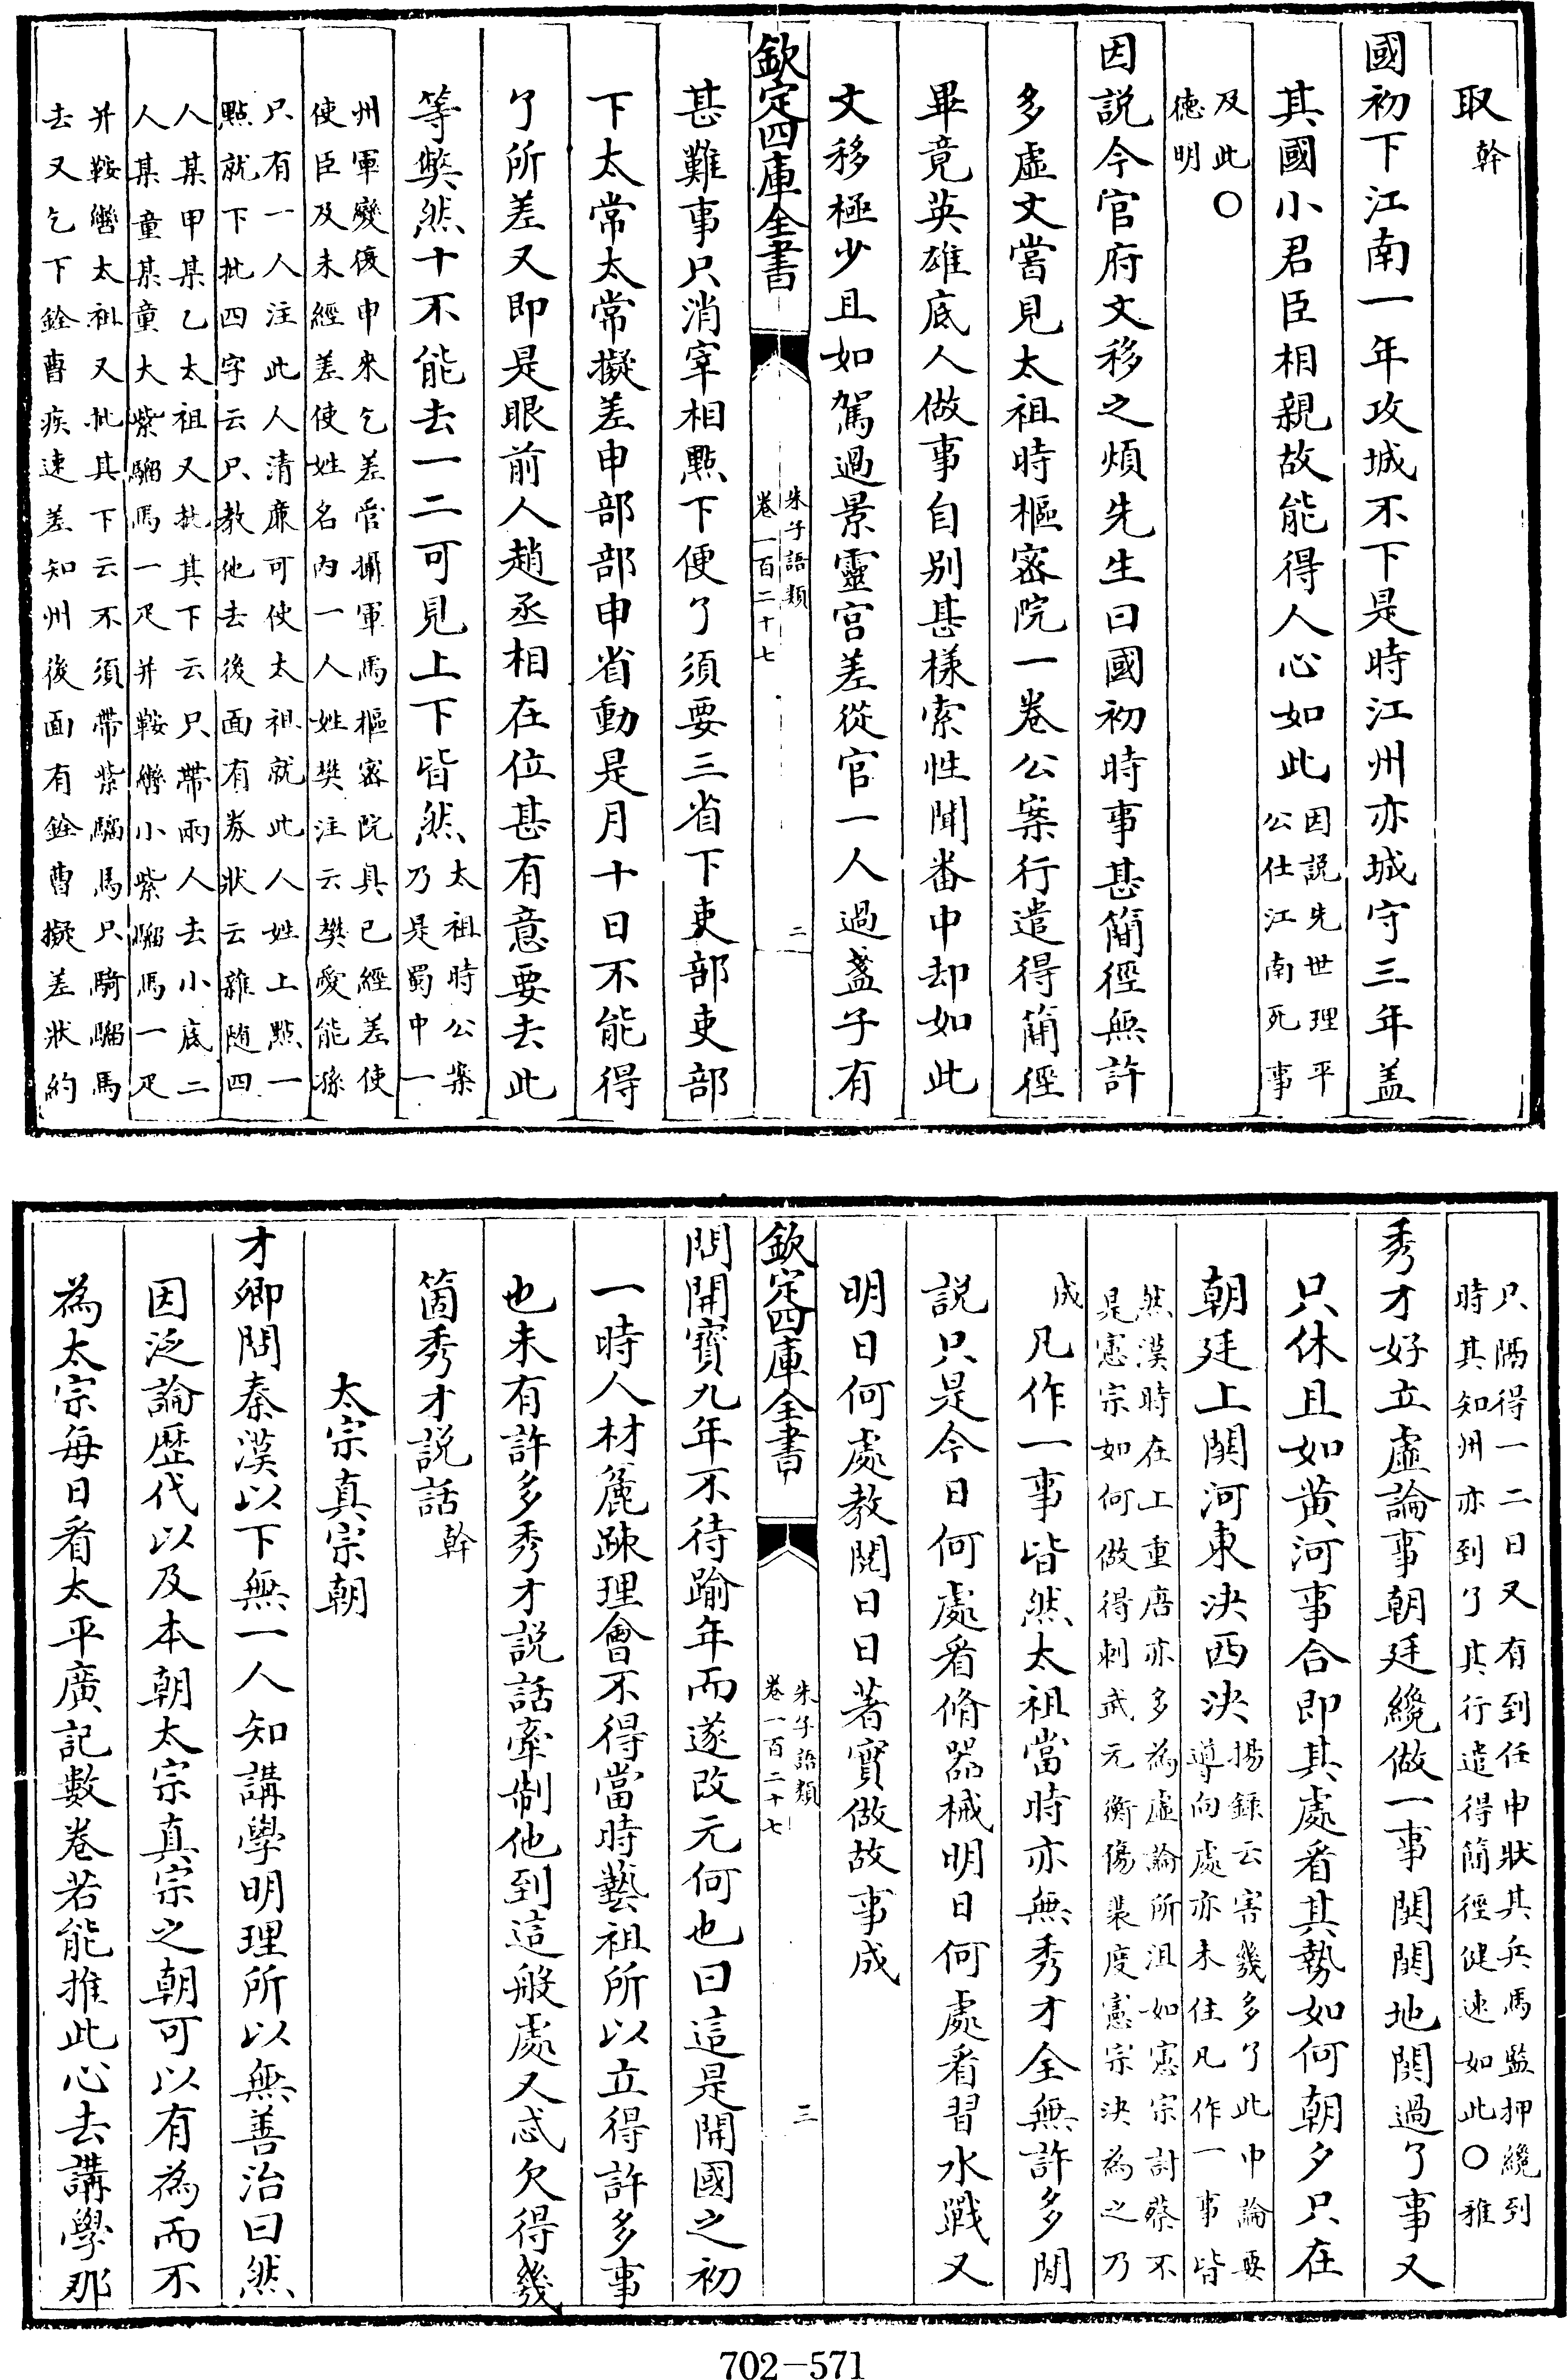 取幹
國初下江南一年攻城不下是時江州亦城守三年盖
其國小君臣相親故能得人心如此因説先世理平公仕江南死事
及此〇德明
因説今官府文移之煩先生曰國初時事甚簡徑無許
多虚文嘗見太祖時樞密院一卷公案行遣得簡徑
畢竟英雄底人做事自别甚様索性聞番中却如此
文移極少且如駕過景靈宫差從官一人過盞子有
欽定四庫全書
朱子語類
卷一百二十七
二
甚難事只消宰相點下便了須要三省下吏部吏部
下太常太常擬差申部部申省動是月十日不能得
了所差又即是眼前人趙丞相在位甚有意要去此
等弊然十不能去一二可見上下皆然太祖時公案乃是蜀中一
州軍變復申來乞差管攝軍馬樞密院具已經差使
使臣及未經差使姓名内一人姓樊注云樊愛能孫
只有一人注此人清廉可使太祖就此人姓上點一
點就下批四字云只教他去後面有劵狀云雜随四
人某甲某乙太祖又批其下云只帶兩人去小底二
人某童某童大紫騮馬一疋并鞍轡小紫騮馬一疋
并鞍轡太祖又批其下云不須帶紫騮馬只騎騮馬
去又乞下銓曹疾速差知州後面有銓曹擬差狀約
只隔得一二日又有到任申狀其兵馬監押纔到
時其知州亦到了其行遣得簡徑健速如此〇雉
秀才好立虚論事朝廷纔做一事鬨鬨地鬨過了事又
只休且如黄河事合即其處看其勢如何朝夕只在
朝廷上鬨河東決西決揚録云害幾多了此中論要導向處亦未住凡作一事皆
然漢時在上重唐亦多為虚論所沮如憲宗討蔡不
是憲宗如何做得刺武元衡傷裴度憲宗決為之乃
成凡作一事皆然太祖當時亦無秀才全無許多閒
説只是今日何處看脩器械明日何處看習水戰又
明日何處教閱日日著實做故事成
欽定四庫全書
朱子語類
卷一百二十七
三
問開寳九年不待踰年而遂改元何也曰這是開國之初
一時人材麄疎理會不得當時藝祖所以立得許多事
也未有許多秀才説話牽制他到這般處又忒欠得幾
箇秀才説話幹
太宗真宗朝
才卿問秦漢以下無一人知講學明理所以無善治曰然
因泛論歴代以及本朝太宗真宗之朝可以有為而不
為太宗每日看太平廣記數卷若能推此心去講學那
702-571